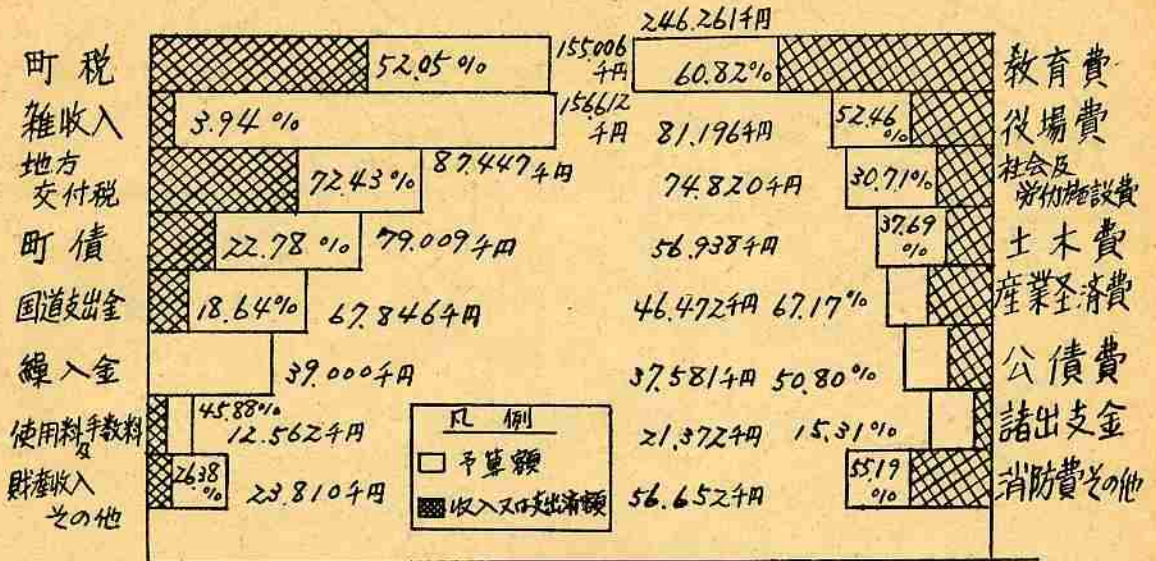 町税
52.05%
155.006
千円
雑収入
3.94%
156.612
千円
地方
交付税
72.43%
87.447千円
町債
22.78%
79.009千円
国道支出金
18.64%
67.846千円
繰入金
39.000千円
使用料及手数料
45.88%
12.562千円
財産収入
その他
26.38
%
23.810千円
凡例
予算額
収入又は支出済額
246.261千円
60.82%
教育費
81.196千円
52.46
%
役場費
74.820千円
30.71%
社会及
労仂施設費
56.938千円
37.69
%
土木費
46.472千円
67.17%
産業経済費
37.581千円
50.80%
公債費
21.372千円
15.31%
諸出支金
56.652千円
55.19
%
消防費その他